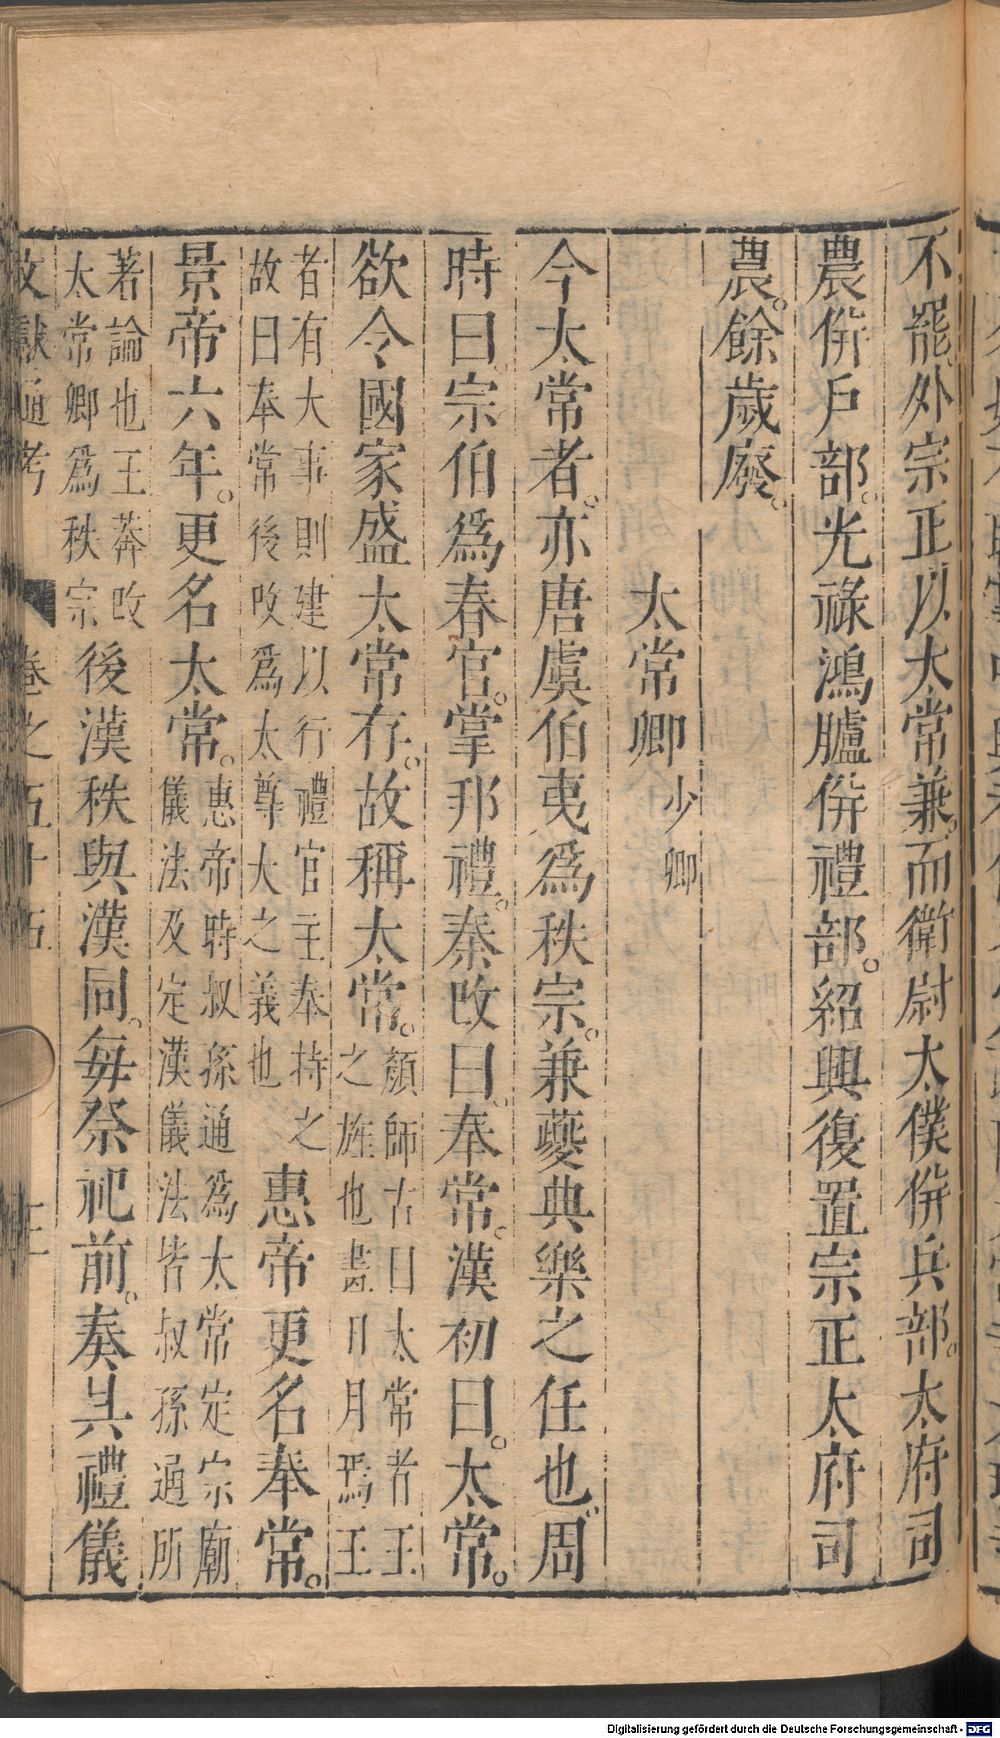 不罷。外宗正以太常兼。而衛尉太僕併兵部。太府司
農併戶部。光祿鴻臚併禮部。紹興復置宗正太府司
農。餘歲廢。
太常卿 少卿
今太常者。亦唐虞伯夷為秩宗。兼夔典樂之任也。周
時曰。宗伯爲春官。掌邦禮。秦改曰。奉常。漢初曰。太常。
欲令國家盛太常存。故稱太常。顏師古曰太常者王
之旌也畫日月焉王
者有大事則建以行禮官主奉持之
故曰奉常後改爲太尊大之義也惠帝更名奉常。
景帝六年。更名太常。惠帝時叔孫通爲太常定宗廟
儀法及定漢儀法皆叔孫通所
著論也王莽改
太常卿爲秩宗後漢秩與漢同。每祭祀前。奏其禮儀
文獻通考 卷之五十五
Digitalisierung gefördert durch die Deutsche Forschungsgemeinschaft - DFG